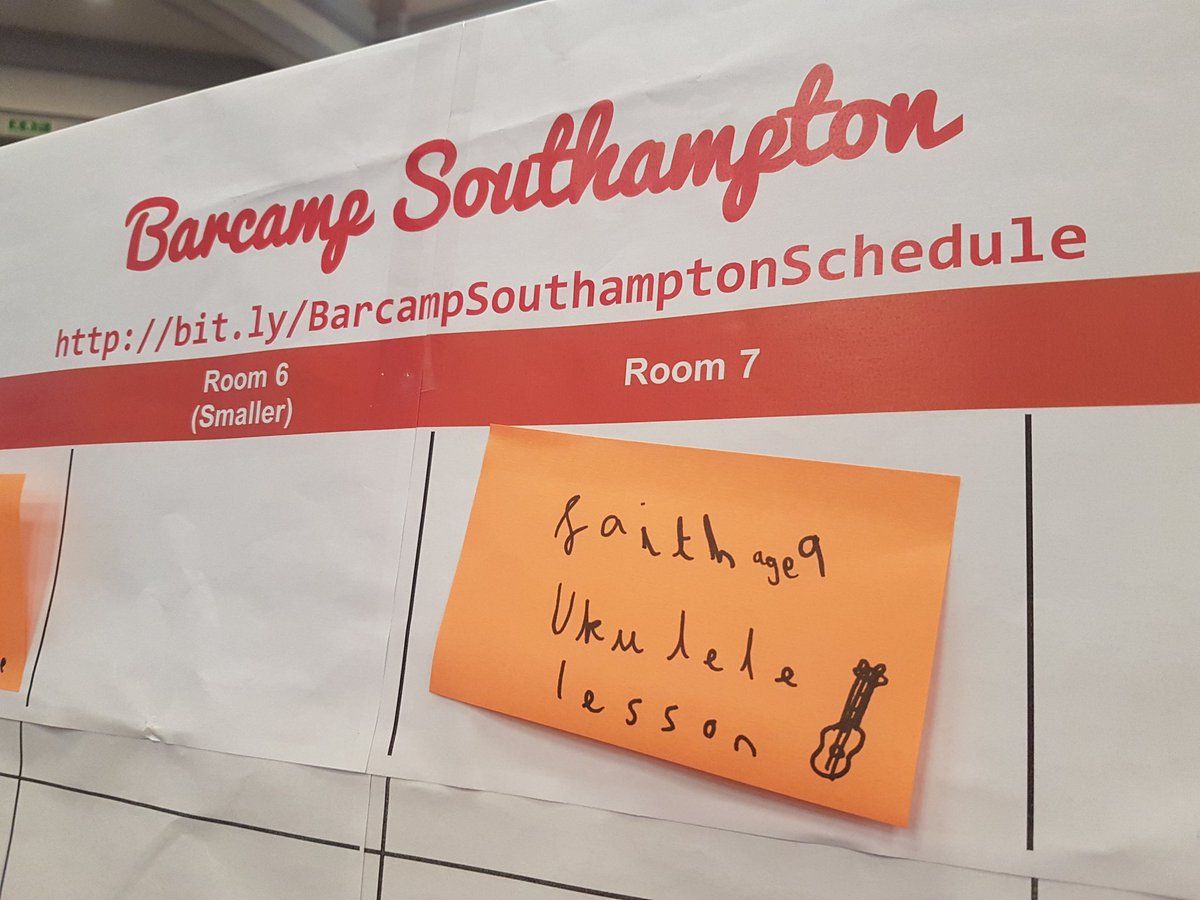 Barcamp Southampton
http://bit.ly/BarcampSouthamptonSchedule
Room 6
(Smaller)
Room 7
faith age 9
Ukulele
lesson